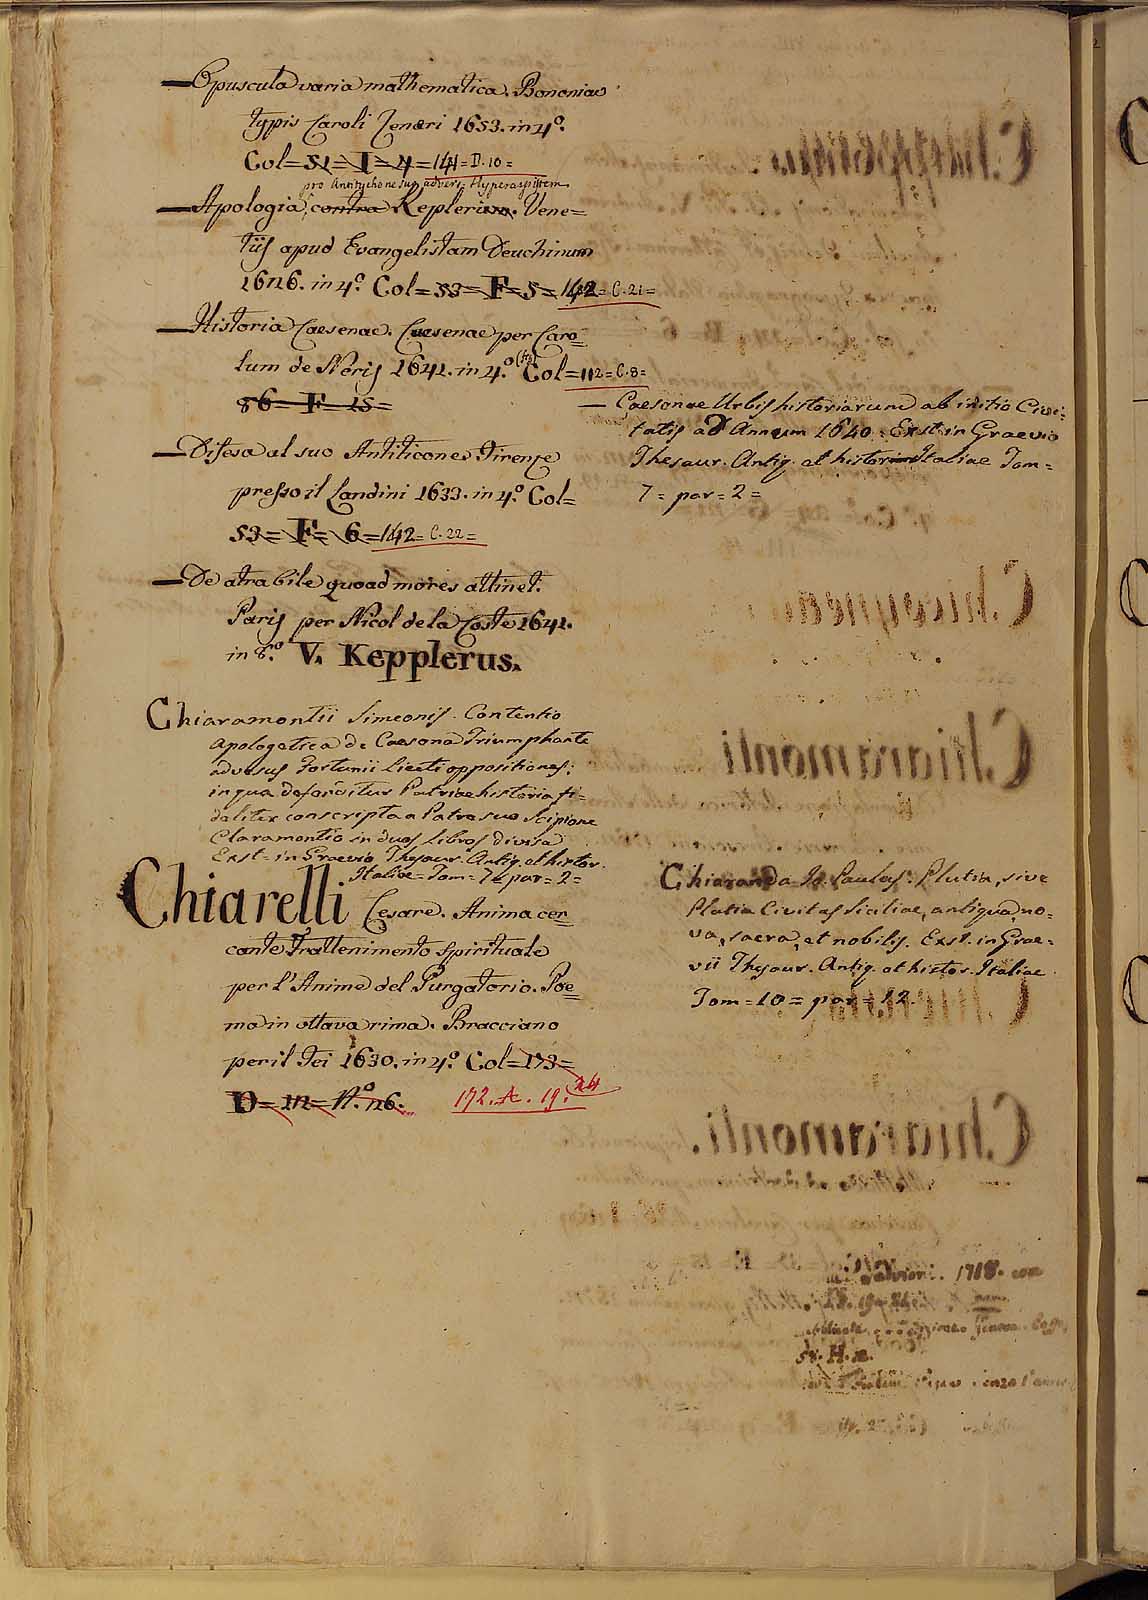 — Opuscula varia mathematica. Bononiae
typis Caroli Zeneri 1653. in 4.º
Col= 51= I= 4= 141= D. 10=
pro Antitychone suo advers. Hyperaspistem
— Apologia, contra Keplerum. Vene=
tiis apud Evangelistam Deuchinum
1626. in 4.º Col= 53= F= 5= 142= C. 21=
— Historia Caesenae. Caesenae per Caro=
lum de Neris 1641. in 4.º Col= 112= C. 8=
86= F= 15=
— Caesenae Urbis historiarum ab initio Civi=
tatis ad Annum 1640. Exst. in Graevio
Thesaur. Antiq. et histor Italiae Tom=
7= par= 2=
— Difesa al suo Antiticone Firenze
presso il Landini 1633. in 4.º Col=
53= F= 6= 142= C. 22=
— De atra bile quoad mores attinet.
Paris per Nicol de la Coste 1641.
in 8.º V. Kepplerus.
Chiaramontii Simeonis. Contentio
apologetica de Caesena Triumphante
adversus Fortunii Liceti oppositiones;
in qua defenditur Patriae historia fi=
deliter conscripta a Patre suo Scipione
Claramontio in duos libros divisa
Exst= in Graevio Thesaur. Antiq. et histor.
Italiae= Tom= 7= par= 2=
Chiarelli Cesare. Anima cer=
cante Trattenimento spirituale
per l'Anime del Purgatorio. Poe=
ma in ottava rima. Bracciano
per il Fei 1630. in 4.º Col= 173=
D= m= N.º 26. 172. A. 19. 24
Chiaranda Jo Paulus. Plutia, sive
Platia Civitas Siciliae, antiqua, no=
va, sacra, et nobilis. Exst. in Grae=
vii Thesaur. Antiq. et histor. Italiae
Tom= 10= par= 12.